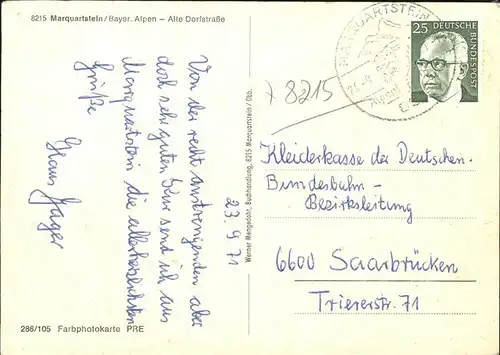 8215 Marquartstein/Bayer. Alpen - Alte Dorfstraße
23.9.71
Von der recht anstrengenden aber
doch sehr guten Kur send ich aus
Marquartstein die allerherzlichsten
Grüße
Jager
286/105 Farbphotokarte PRE
Werner Mengedoht, Buchhandlung, 8215 Marquartstein/Obb.
MARQUARTSTEIN
25
DEUTSCHE
BUNDESPOST
8215
Kleiderkasse der Deutschen
Bundesbahn -
Bezirksleitung
6600 Saarbrücken
Triererstr. 71